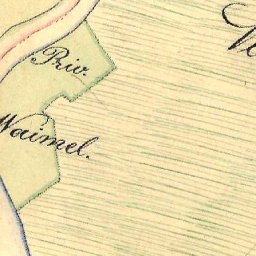 Priv.
Waimel.